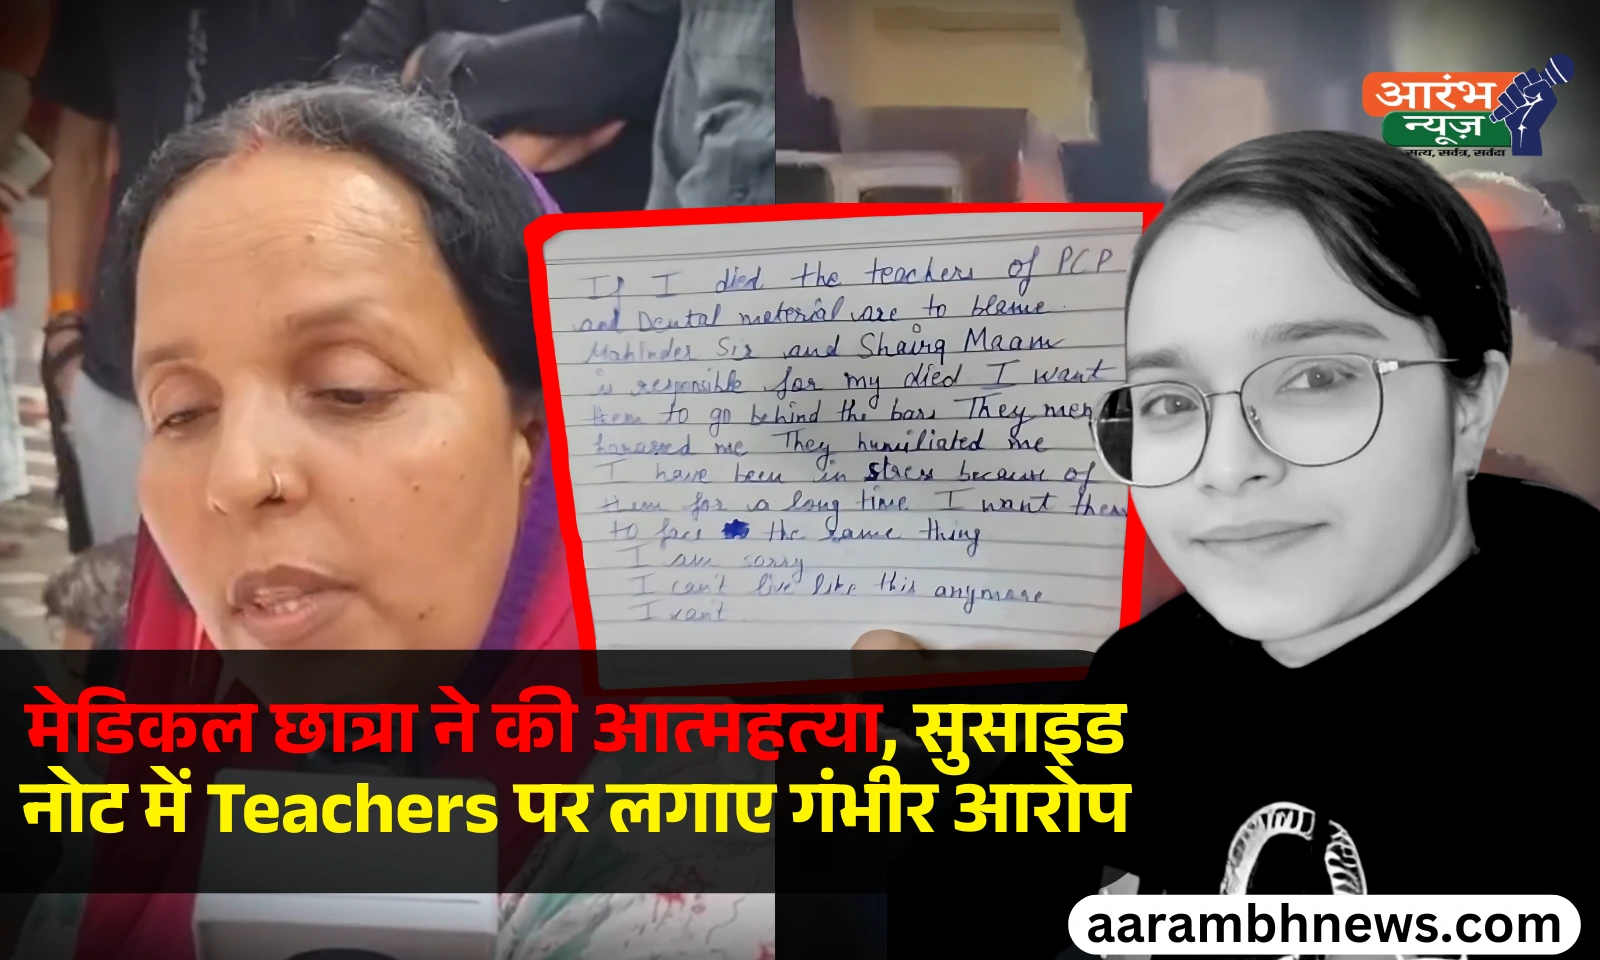 आरंभ
न्यूज़
सत्य, सर्वत्र, सर्वदा
If I died the teachers of PCP
and Dental material are to blame.
Mahinder Sir and Shairg Maam
is responsible for my died I want
them to go behind the bars They men
harassed me They humiliated me
I have been in stress because of
them for a long time I want them
to face the same thing
I am sorry
I can't live like this anymore
I want
मेडिकल छात्रा ने की आत्महत्या, सुसाइड
नोट में Teachers पर लगाए गंभीर आरोप
aarambhnews.com